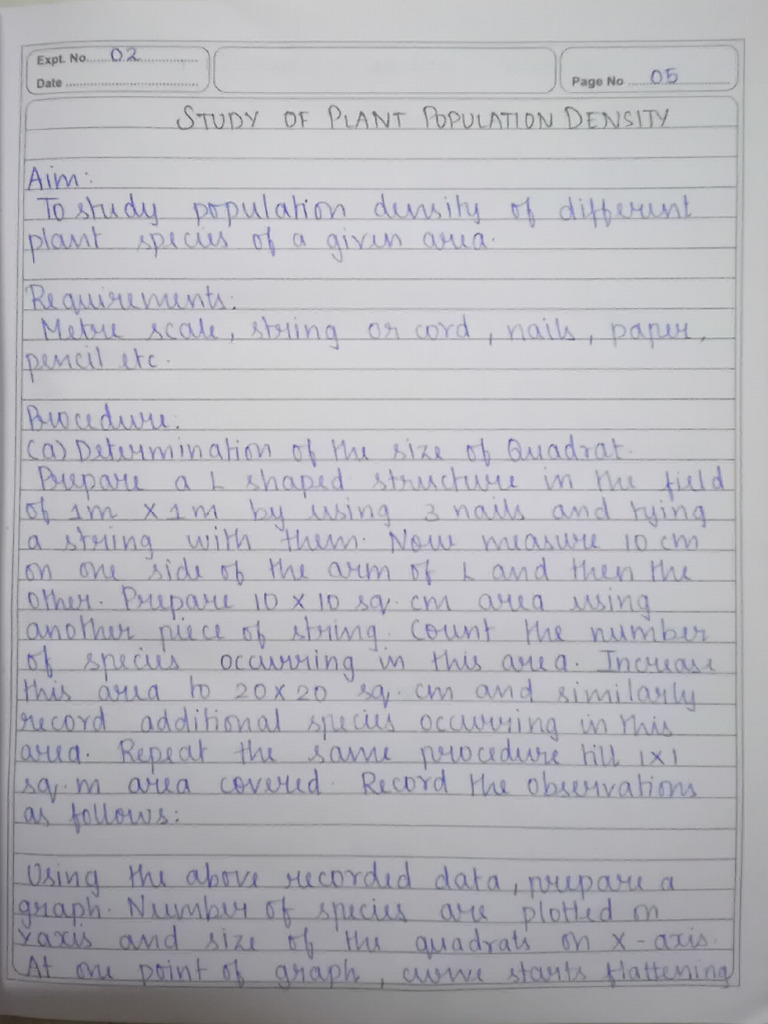 Expt. No. 02
Date
Page No 05
STUDY OF PLANT POPULATION DENSITY
Aim:
To study population density of different
plant species of a given area.
Requirements:
Metre scale, string or cord, nails, paper,
pencil etc.
Procedure:
(a) Determination of the size of Quadrat.
Prepare a L shaped structure in the field
of 1m x 1m by using 3 nails and tying
a string with them. Now measure 10 cm
on one side of the arm of L and then the
other. Prepare 10 x 10 sq. cm area using
another piece of string. Count the number
of species occurring in this area. Increase
this area to 20x20 sq. cm and similarly
record additional species occurring in this
area. Repeat the same procedure till 1x1
sq. m area covered. Record the observations
as follows:
Using the above recorded data, prepare a
graph. Number of species are plotted on
Yaxis and size of the quadrats on X-axis.
At one point of graph, curve starts flattening